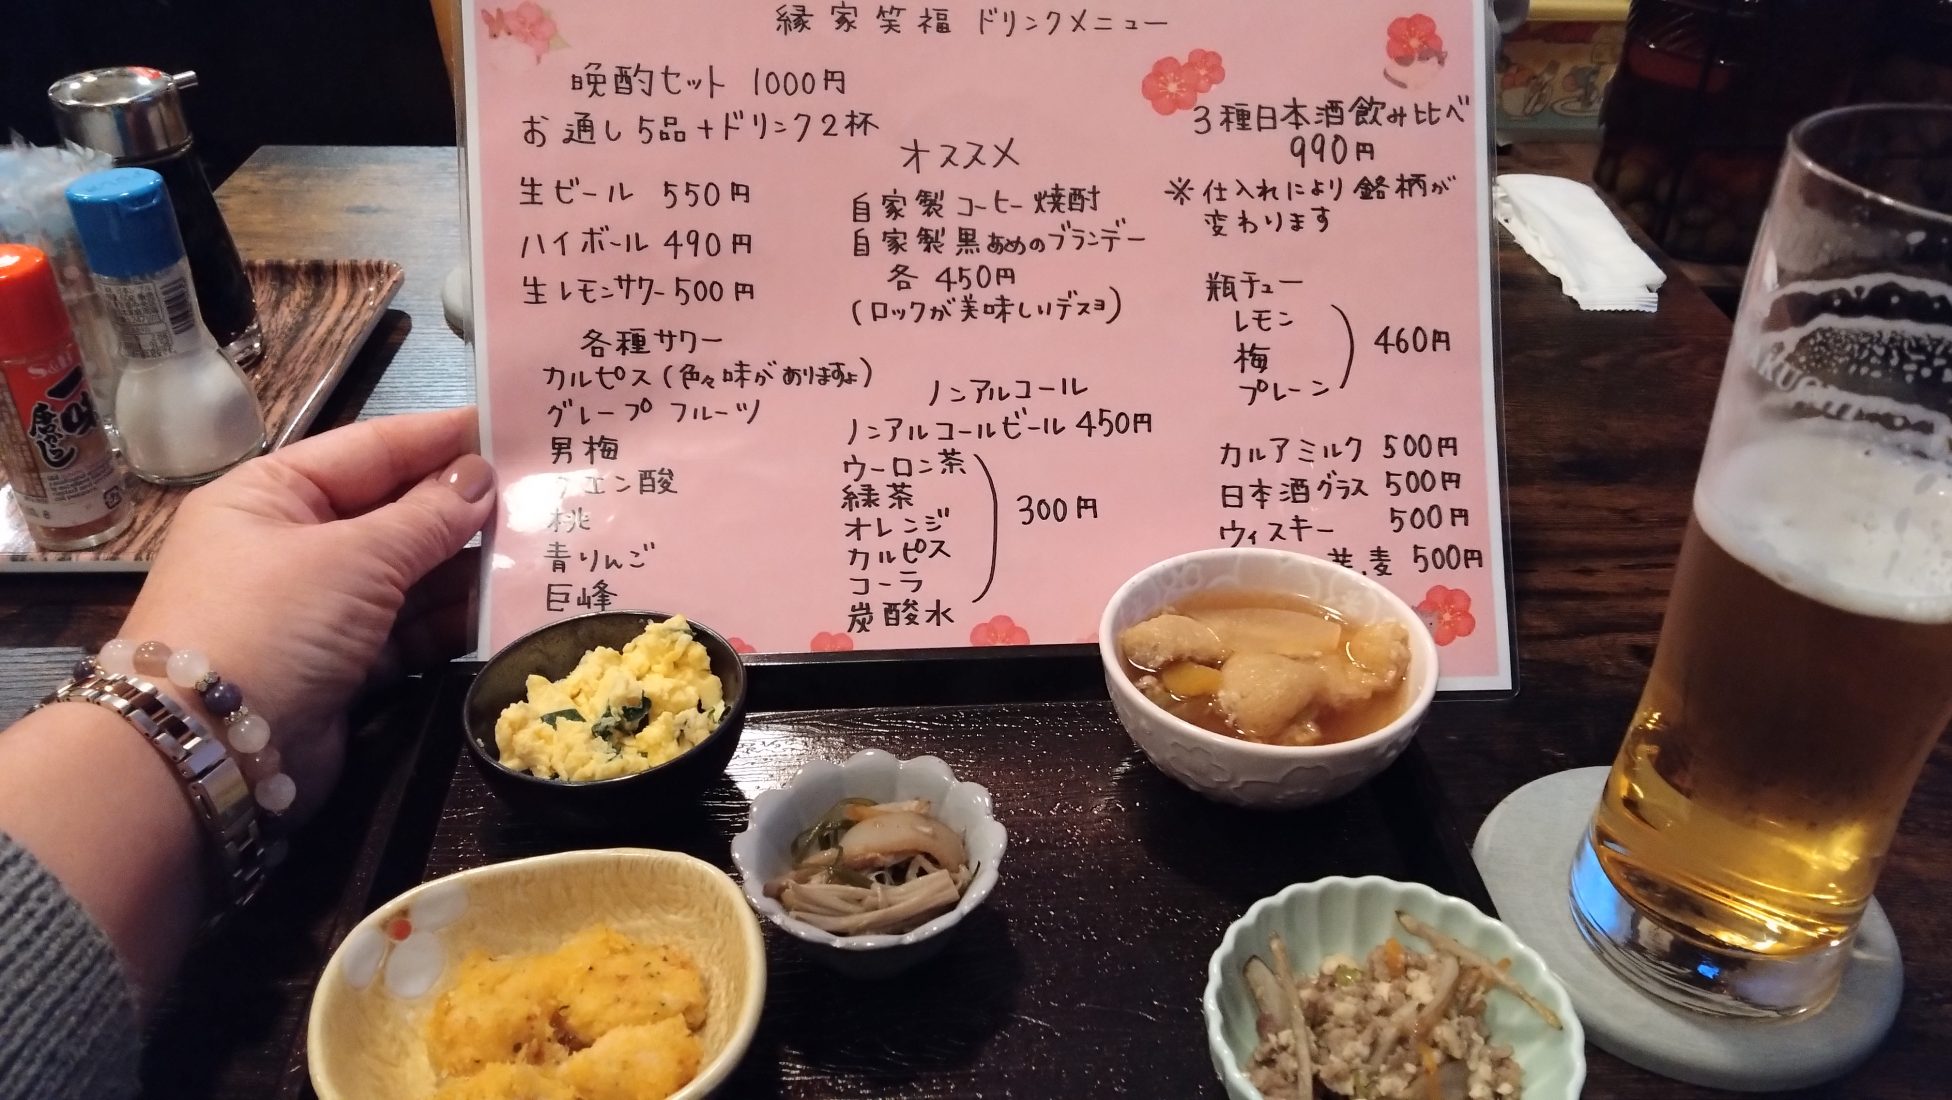 縁家笑福 ドリンクメニュー
晩酌セット 1000円
お通し5品+ドリンク2杯
生ビール 550円
ハイボール 490円
生レモンサワー 500円
各種サワー
カルピス(色々味がありますよ)
グレープフルーツ
男梅
クエン酸
桃
青りんご
巨峰
オススメ
自家製コーヒー焼酎
自家製黒あめのブランデー
各 450円
(ロックが美味しいデスヨ)
ノンアルコール
ノンアルコールビール 450円
ウーロン茶
緑茶
オレンジ
カルピス
コーラ
300円
炭酸水
3種日本酒飲み比べ
990円
※仕入れにより銘柄が
変わります
瓶チュー
レモン
梅
プレーン
460円
カルアミルク 500円
日本酒グラス 500円
ウィスキー 500円
麦 500円
一味
唐がらし